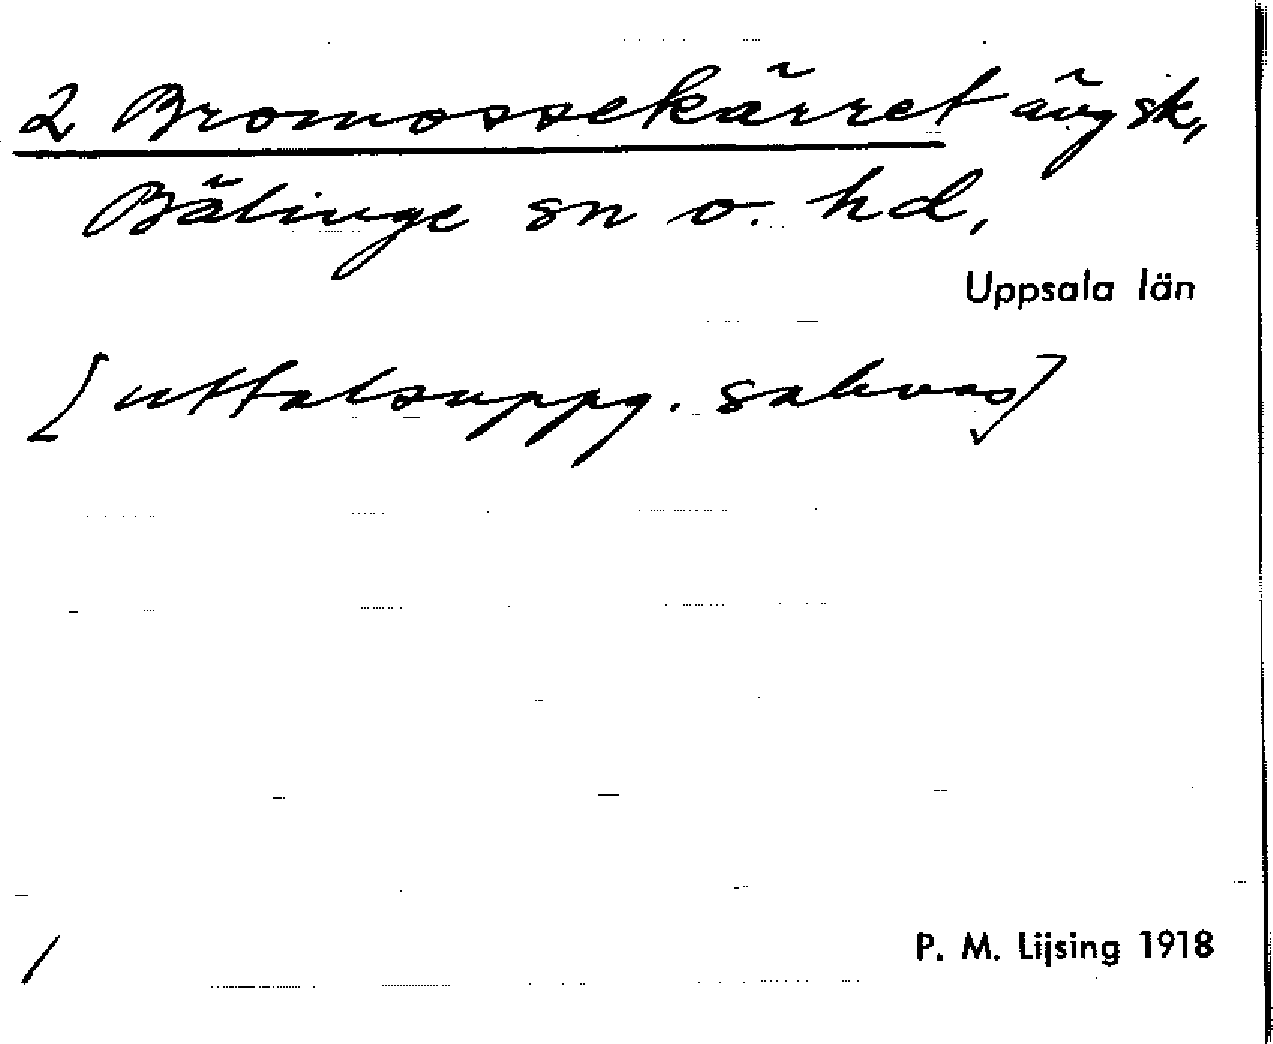 2 Bromossekärret ängsk,
Bälinge sn o. hd,
Uppsala län
[uttalsuppg. saknas]
P. M. Lijsing 1918